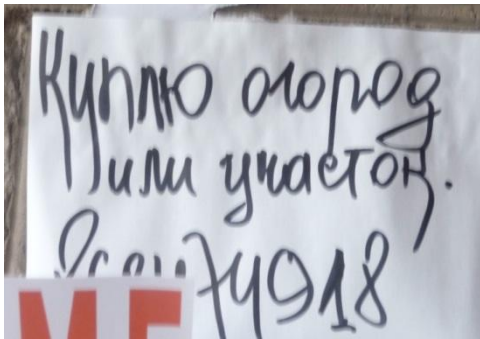 Куплю огород
или участок.
74918
МЕ